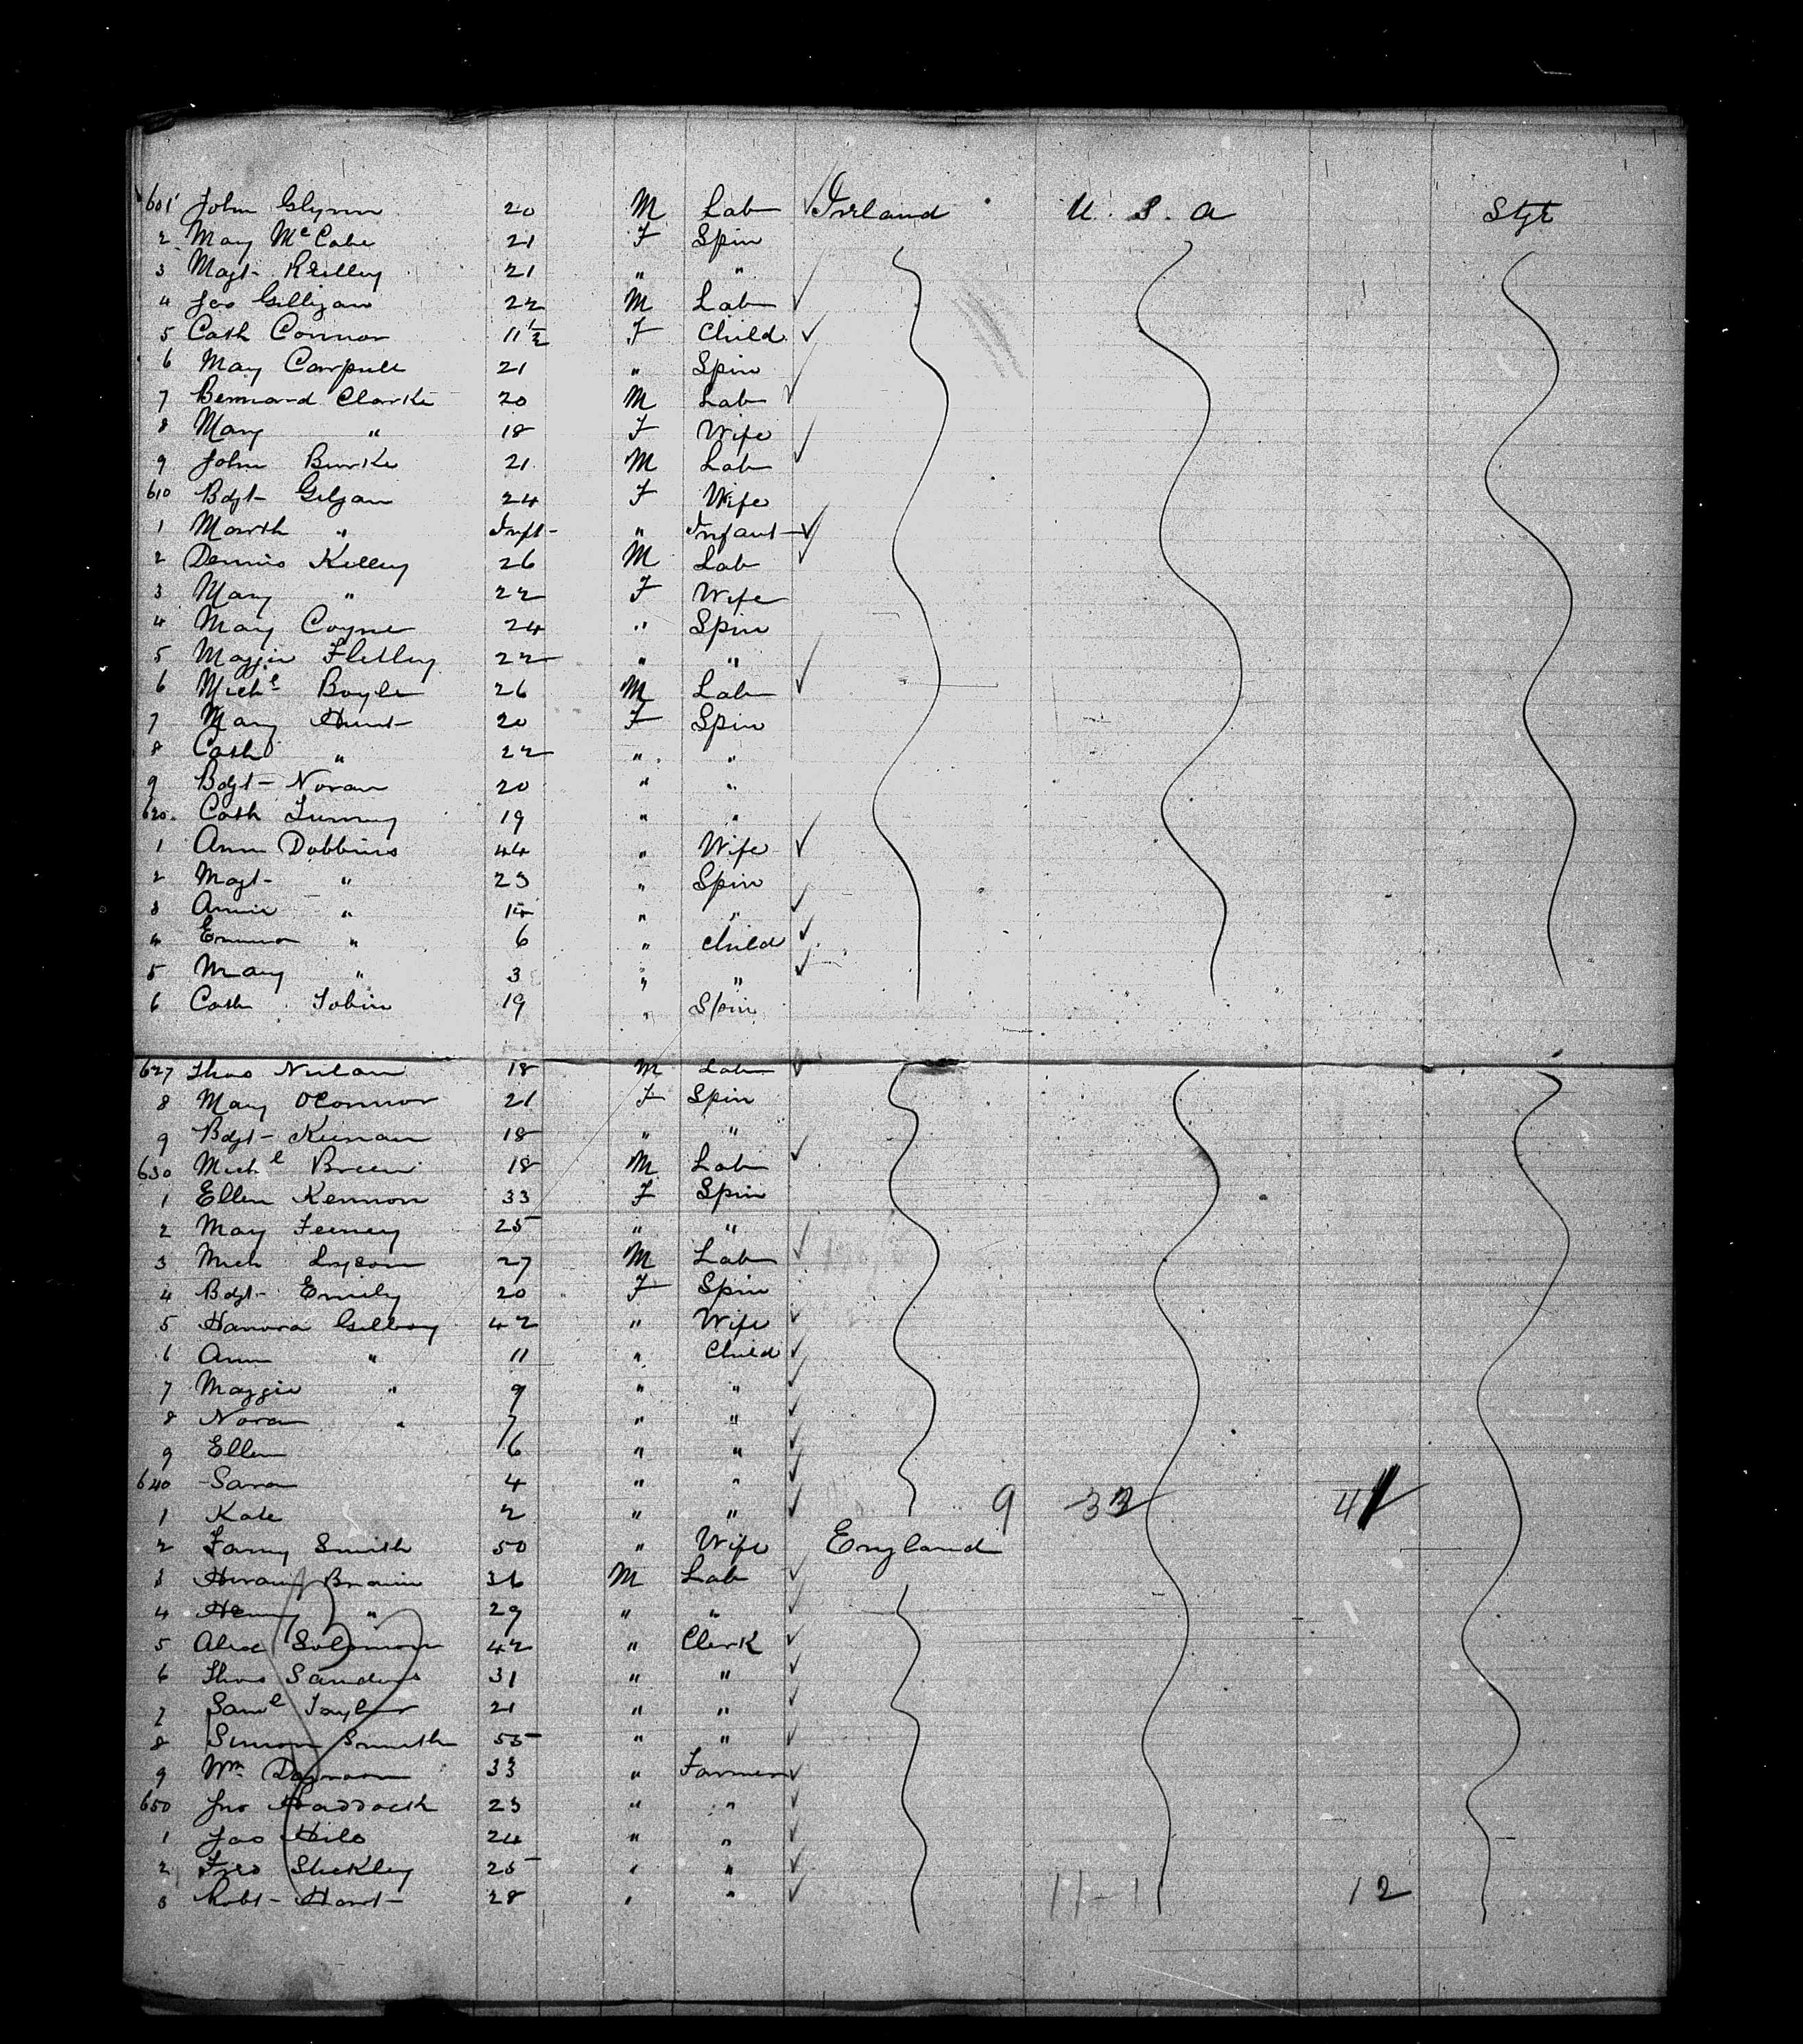 601 John Glynn 20 M Lab ✓ Ireland U. S. A Stge
2 Mary McCabe 21 F Spin
3 Magt- Reilley 21 " "
4 Jas Gilligan 22 M Lab ✓
5 Cath Connor 11½ F Child ✓
6 May 21 " Spin
7 Bernard Clarke 20 M Lab ✓
8 Mary " 18 F Wife
9 John Burke 21 M Lab ✓
610 Bdgt- Gilgan 24 F Wife
1 " Inft- " Infant ✓
2 Dennis Kelley 26 M Lab ✓
3 Mary " 22 F Wife
4 Mary Coyne 24 " Spin
5 Maggie 22 " "
6 Michl Boyle 26 M Lab ✓
7 Mary Hunt 20 F Spin
8 Cath " 22 " "
9 Bdgt- Noran 20 " "
620 Cath 19 " "
1 Ann Dobbins 44 " Wife ✓
2 Magt- " 23 " Spin
3 Annie " " " ✓
4 Emma " 6 " Child ✓
5 Mary " 3 " " ✓
6 Cath Tobin 19 " Spin
627 Thos Neilan 18 M Lab ✓
8 Mary OConnor 21 F Spin
9 Bdgt- Keenan 18 " "
630 Michl Breen 18 M Lab ✓
1 Ellen Kennon 33 F Spin
2 May Feeney 25 " "
3 Mich 27 M Lab ✓
4 Bdgt- Emily 20 F Spin
5 Hanora Gilboy 42 " Wife ✓
6 Ann " 11 " Child ✓
7 Maggie " 9 " " ✓
8 Nora " 7 " " ✓
9 Ellen 6 " " ✓
640 Sara 4 " " ✓
1 Kate 2 " " ✓ 9 4
2 Fanny Smith 50 " Wife England
3 Hiram 36 M Lab ✓
4 Henry " 29 " " ✓
5 Alex Solomon 42 " Clerk ✓
6 Thos Sanders 31 " " ✓
7 Saml Taylor 21 " " ✓
8 Simon Smith 55 " " ✓
9 Wm 33 " Farmer ✓
650 Jno 23 " " ✓
1 Jas 24 " " ✓
2 Fred Stickley 25 " " ✓
3 Robt- Hart- 28 " " ✓ 11-1 12